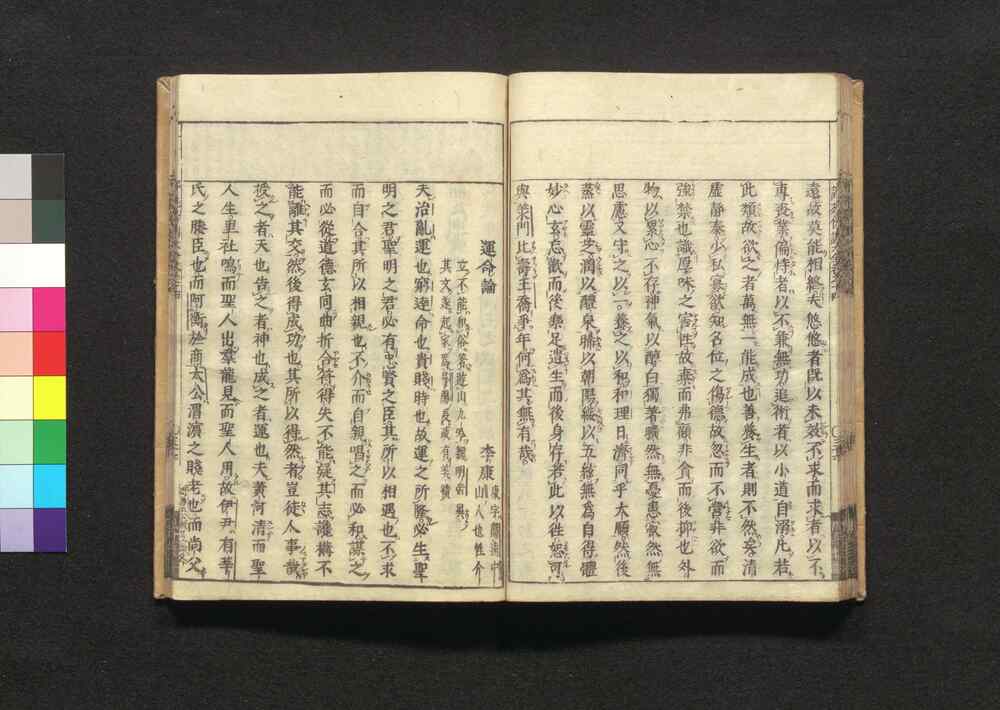 遠故莫能相終夫悠悠者既以未效不求而求者以不
專喪業偏恃者以不兼無功追術者以小道自溺凡若
此類故欲之者萬無一能成也善養生者則不然矣清
虛靜泰少私寡欲知名位之傷德故忽而不營非欲而
強禁也識厚味之害性故棄而弗顧非貪而後抑也外
物以累心不存神氣以醇白獨著曠然無憂患寂然無
思慮又守之以一養之以和和理日濟同乎大順然後
蒸以靈芝潤以醴泉晞以朝陽綏以五絃無為自得體
妙心玄忘歡而後樂足遺生而後身存若此以往恕可
與羨門比壽王喬爭年何為其無有哉
運命論
李康 康字蕭遠中山人也性介
立不能和俗著遊山九吟魏明帝異
其文遂起家為尋陽長政有美績
夫治亂運也窮達命也貴賤時也故運之所隆必生聖
明之君聖明之君必有忠賢之臣其所以相遇也不求
而自合其所以相親也不介而自親唱之而必和謀之
而必從道德玄同曲折合符得失不能疑其志讒搆不
能離其交然後得成功也其所以得然者豈徒人事哉
授之者天也告之者神也成之者運也夫黃河清而聖
人生里社鳴而聖人出羣龍見而聖人用故伊尹有莘
氏之媵臣也而阿衡於商太公渭濱之賤老也而尚父